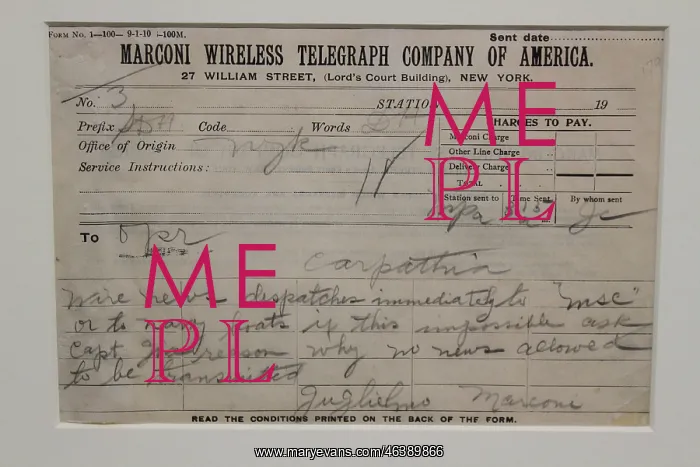 Form No. 1—100— 9-1-10 —100M.
Sent date
MARCONI WIRELESS TELEGRAPH COMPANY OF AMERICA.
27 WILLIAM STREET, (Lord's Court Building), NEW YORK.
No. 3 STATION 19
Prefix Code Words CHARGES TO PAY.
Office of Origin nyk Marconi Charge
Other Line Charge
Service Instructions: Delivery Charge
TOTAL
Station sent to Time Sent By whom sent
Jc
To Opr
Carpathia
Wire news dispatches immediately to "MSC"
or to navy boats if this impossible ask
Capt give reason why no news allowed
to be transmitted
Guglielmo Marconi
READ THE CONDITIONS PRINTED ON THE BACK OF THE FORM.
ME
PL
ME
PL
www.maryevans.com/46389866